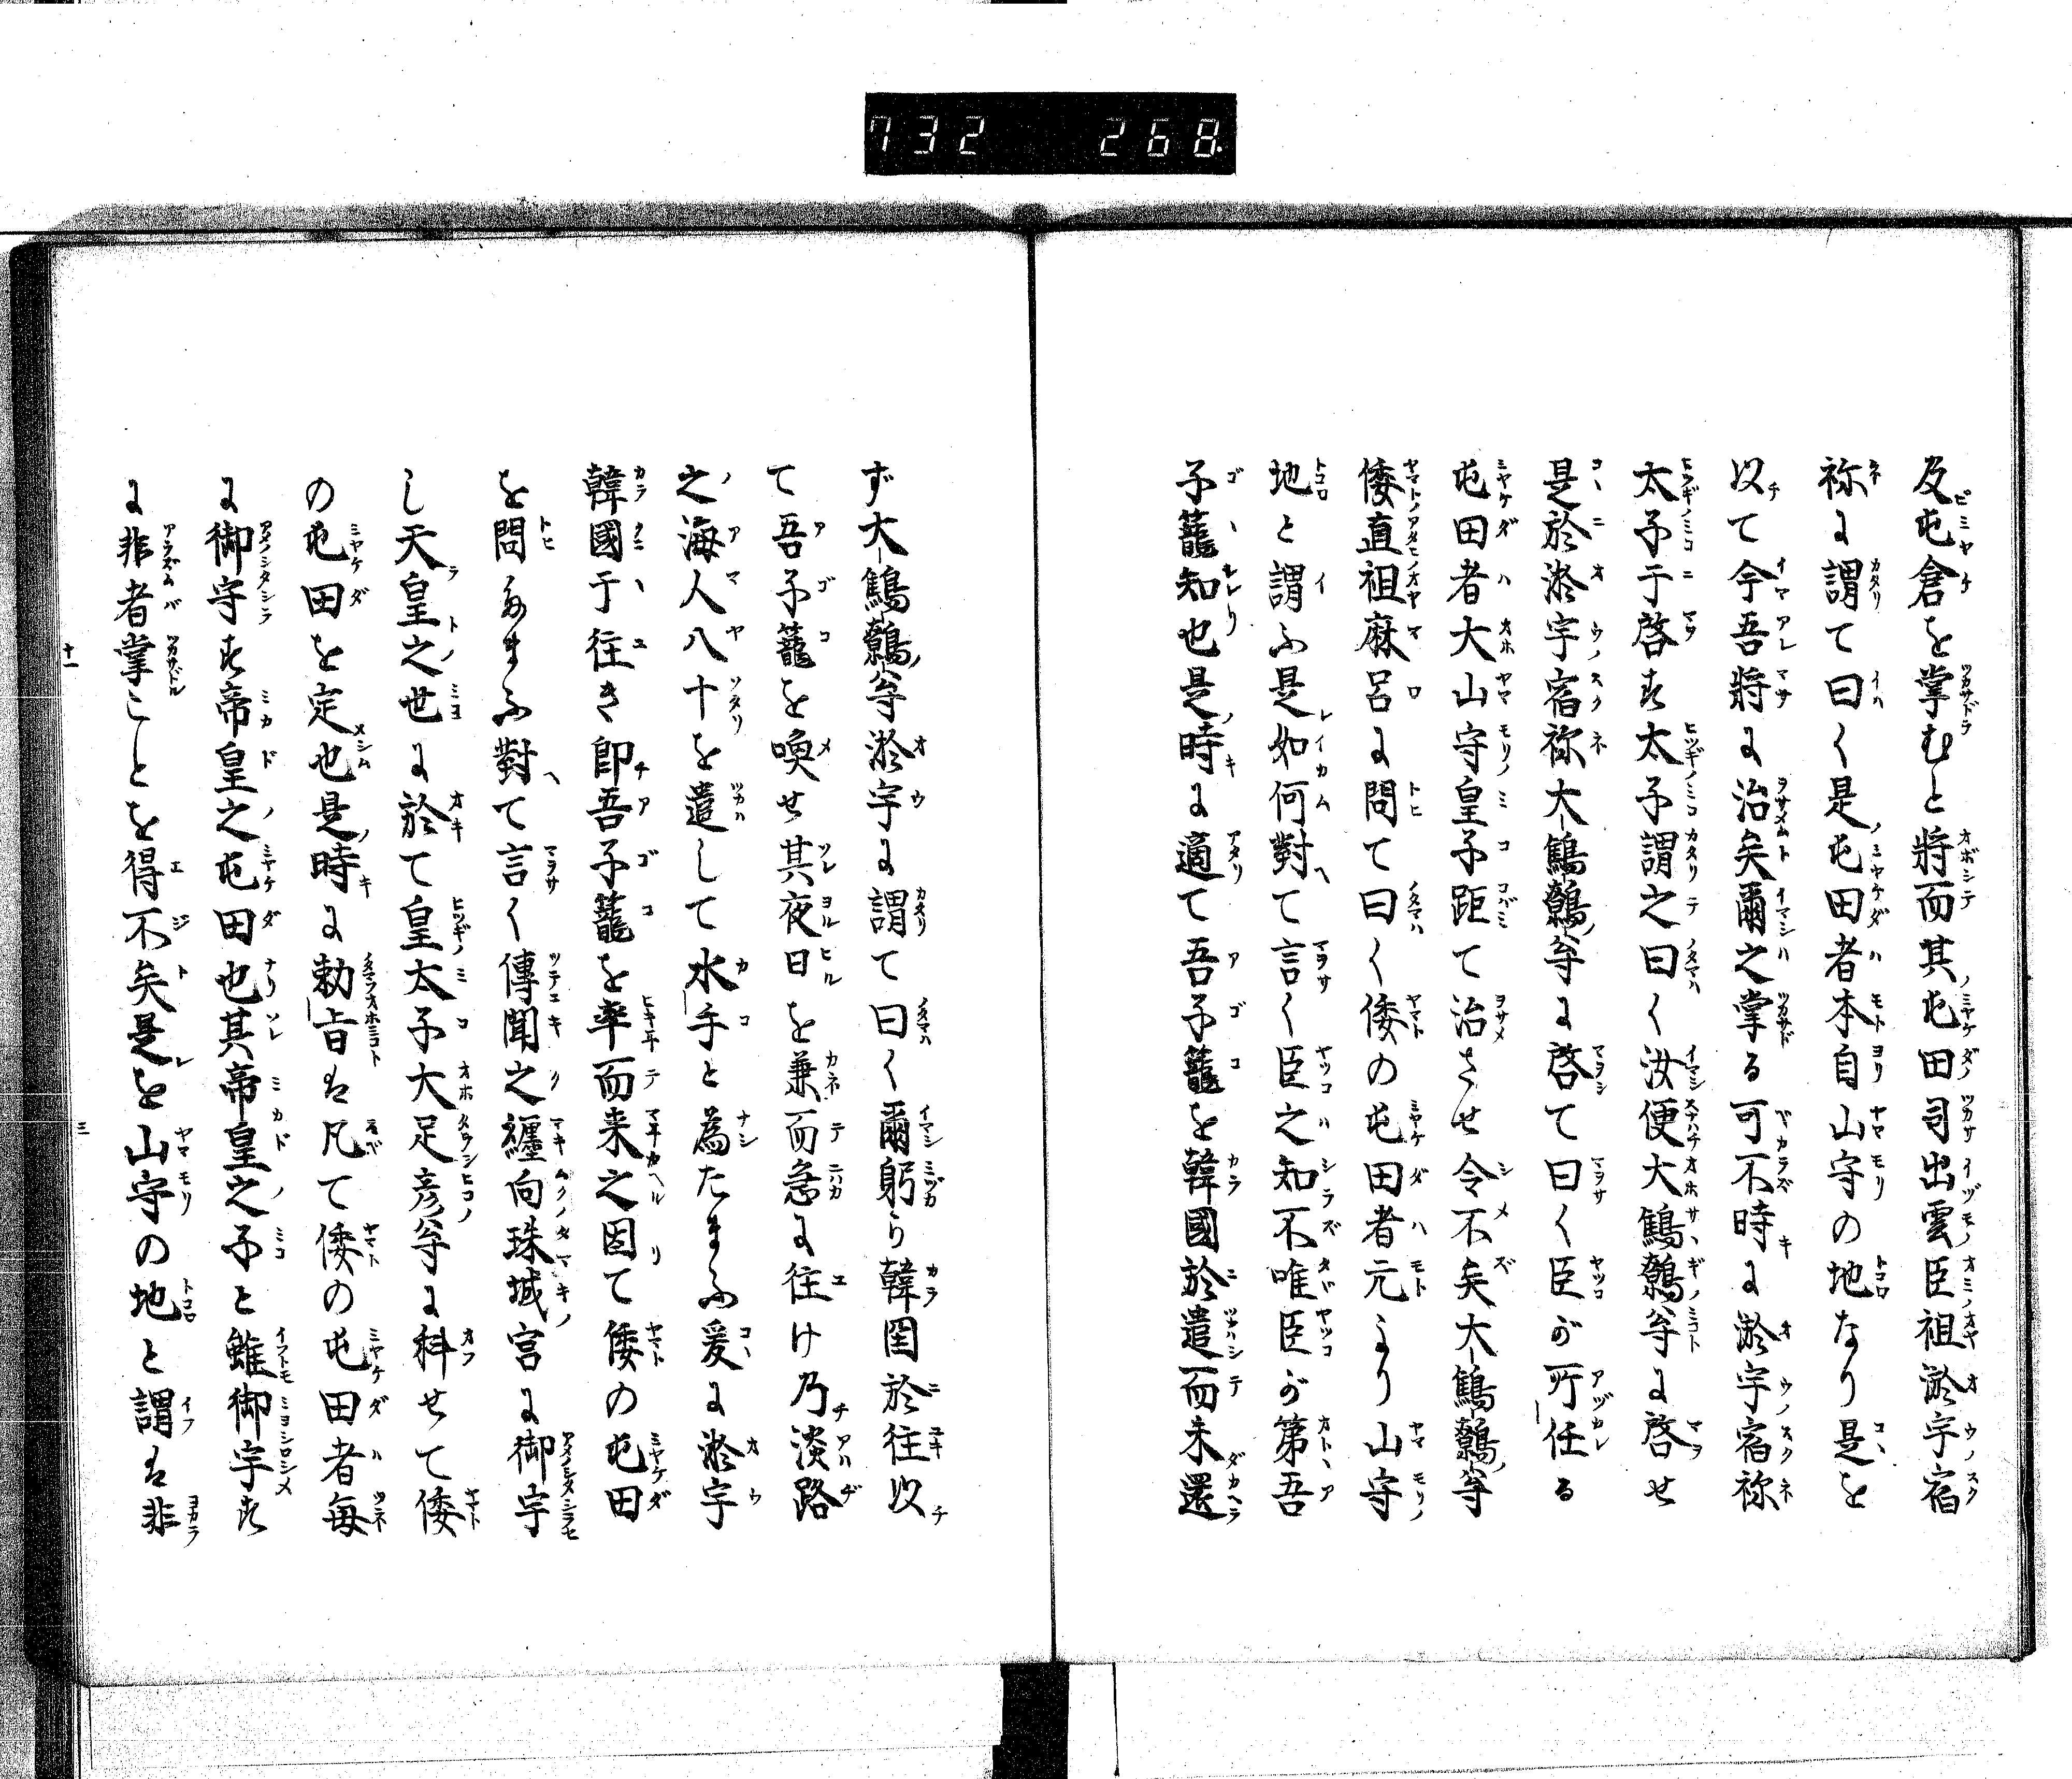 732 268
及屯倉を掌むと將而其屯田司出雲臣祖淤宇宿
祢に謂て曰く是屯田者本自山守の地なり是を
以て今吾將に治矣爾之掌る可不時に淤宇宿祢
太子于啓す太子謂之曰く汝便大鷦鷯尊に啓せ
是於淤宇宿祢大鷦鷯尊に啓て曰く臣が所任る
屯田者大山守皇子距て治させ令不矣大鷦鷯尊
倭直祖麻呂に問て曰く倭の屯田者元より山守
地と謂ふ是如何對て言く臣之知不唯臣が第吾
子籠知也是時に適て吾子籠を韓國於遣而未還
ず大鷦鷯尊淤宇に謂て曰く爾躬ら韓国於往以
て吾子籠を喚せ其夜日を兼而急に往け乃淡路
之海人八十を遣して水手と為たまふ爰に淤宇
韓國于往き即吾子籠を率而来之因て倭の屯田
を問たまふ對て言く傳聞之纏向珠城宮に御宇
し天皇之世に於て皇太子大足彦尊に科せて倭
の屯田を定也是時に勅旨は凡て倭の屯田者毎
に御宇す帝皇之屯田也其帝皇之子と雖御宇す
に非者掌ことを得不矣是を山守の地と謂は非
十一
三